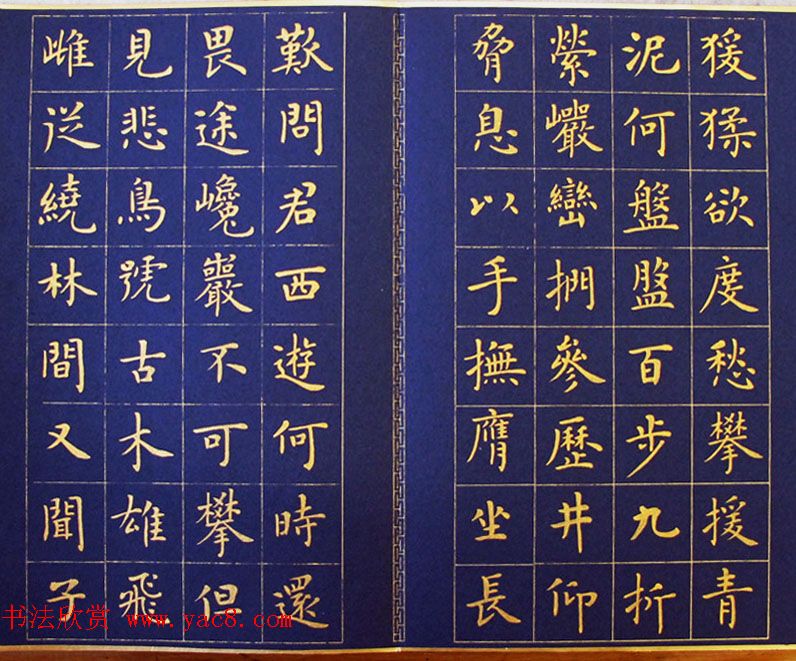 猨猱欲度愁攀援青
泥何盤盤百步九折
縈巖巒捫參歷井仰
脅息以手撫膺坐長
歎問君西遊何時還
畏途巉巖不可攀但
見悲鳥號古木雄飛
雌從繞林間又聞子
书法欣赏 www.yac8.com